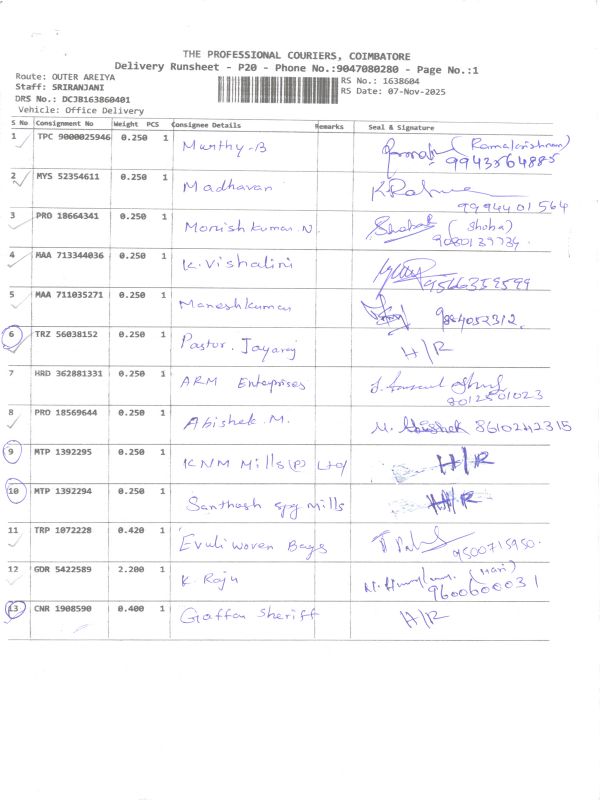 THE PROFESSIONAL COURIERS, COIMBATORE
Delivery Runsheet - P20 - Phone No.:9047080280 - Page No.:1
Route: OUTER AREIYA
RS No.: 1638604
Staff: SRIRANJANI
RS Date: 07-Nov-2025
DRS No.: DCJB163860401
Vehicle: Office Delivery
S No Consignment No Weight PCS Consignee Details Remarks Seal & Signature
1 TPC 9000025946 0.250 1 Murthy-B (Ramakrishnan)
9943564885
2 MYS 52354611 0.250 1 Madhavan
9994401564
3 PRO 18664341 0.250 1 Monish kumar.N. (Shoba)
9080139734
4 MAA 713344036 0.250 1 K.Vishalini 9566359599
5 MAA 711035271 0.250 1 Maneshkumar 9884052312.
6 TRZ 56038152 0.250 1 Pastor. Jayaraj H/R
7 HRD 362881331 0.250 1 ARM Enterprises
8012501023
8 PRO 18569644 0.250 1 Abishek.M. M. Abishek 8610242315
9 MTP 1392295 0.250 1 KNM Mills(P) Ltd H/R
10 MTP 1392294 0.250 1 Santhosh spg Mills H/R
11 TRP 1072228 0.420 1 Evuli Woven Bags
9500715950.
12 GDR 5422589 2.200 1 K. Raju (Hari)
9600600031
13 CNR 1908590 0.400 1 Gaffar Sheriff H/R